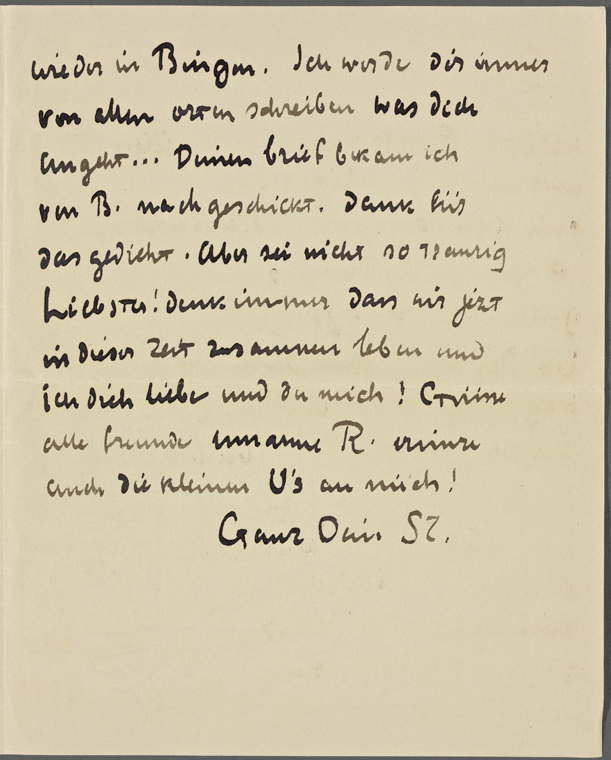 wieder in Bingen. Ich werde dir immer
von allen orten schreiben was dich
angeht... Deinen brief bekam ich
von B. nachgeschickt. Dank für
das gedicht. Aber sei nicht so traurig
Liebster! denk immer dass wir jezt
in dieser Zeit zusammen leben und
ich dich liebe und du mich! Grüsse
alle freunde umarme R. erinnre
auch die kleinen U's an mich!
Ganz Dein St.